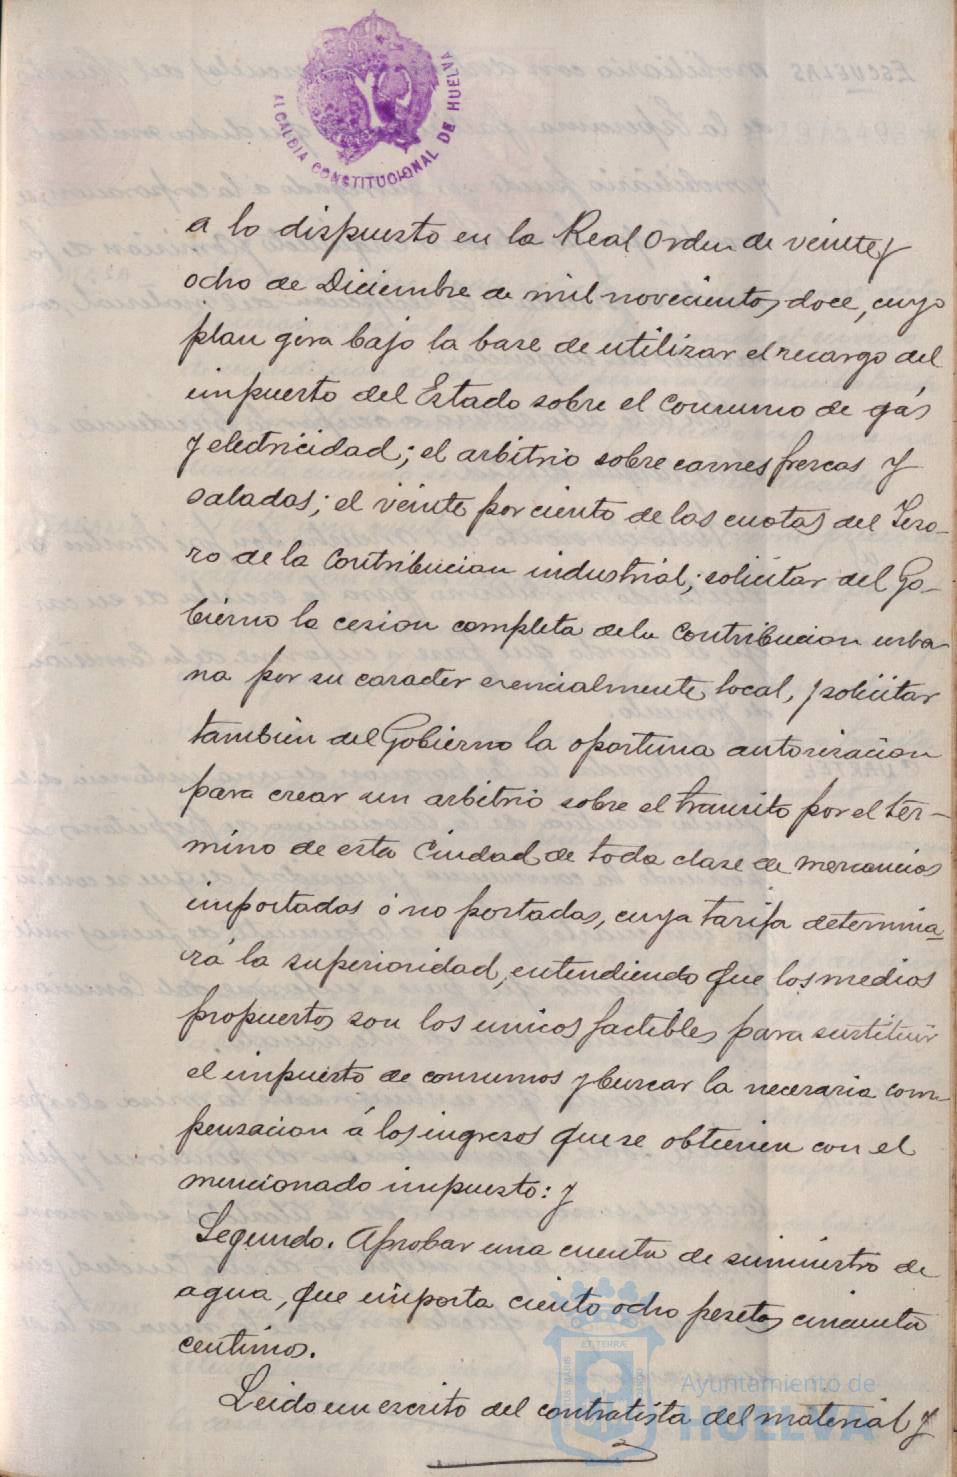 ALCALDIA CONSTITUCIONAL DE HUELVA
a lo dispuesto en la Real Orden de veinte y
ocho de Diciembre de mil novecientos doce, cuyo
plan gira bajo la base de utilizar el recargo del
impuesto del Estado sobre el consumo de gás
y electricidad; el arbitrio sobre carnes frescas y
saladas; el veinte por ciento de las cuotas del Teso-
ro de la Contribucion industrial; solicitar del Go-
bierno la cesion completa de la Contribucion urba-
na por su caracter esencialmente local, y solicitar
tambien del Gobierno la oportuna autorizacion
para crear un arbitrio sobre el transito por el ter-
mino de esta Ciudad de toda clase de mercancias
importadas ó no portadas, cuya tarifa determina-
rá la superioridad, entendiendo que los medios
propuestos son los unicos factibles para sustituir
el impuesto de consumos y buscar la necesaria com-
pensacion á los ingresos que se obtienen con el
mencionado impuesto: y
Segundo. Aprobar una cuenta de suministro de
agua, que importa ciento ocho pesetas cincuenta
centimos.
Leido un escrito del contratista del material y
Ayuntamiento de
HUELVA